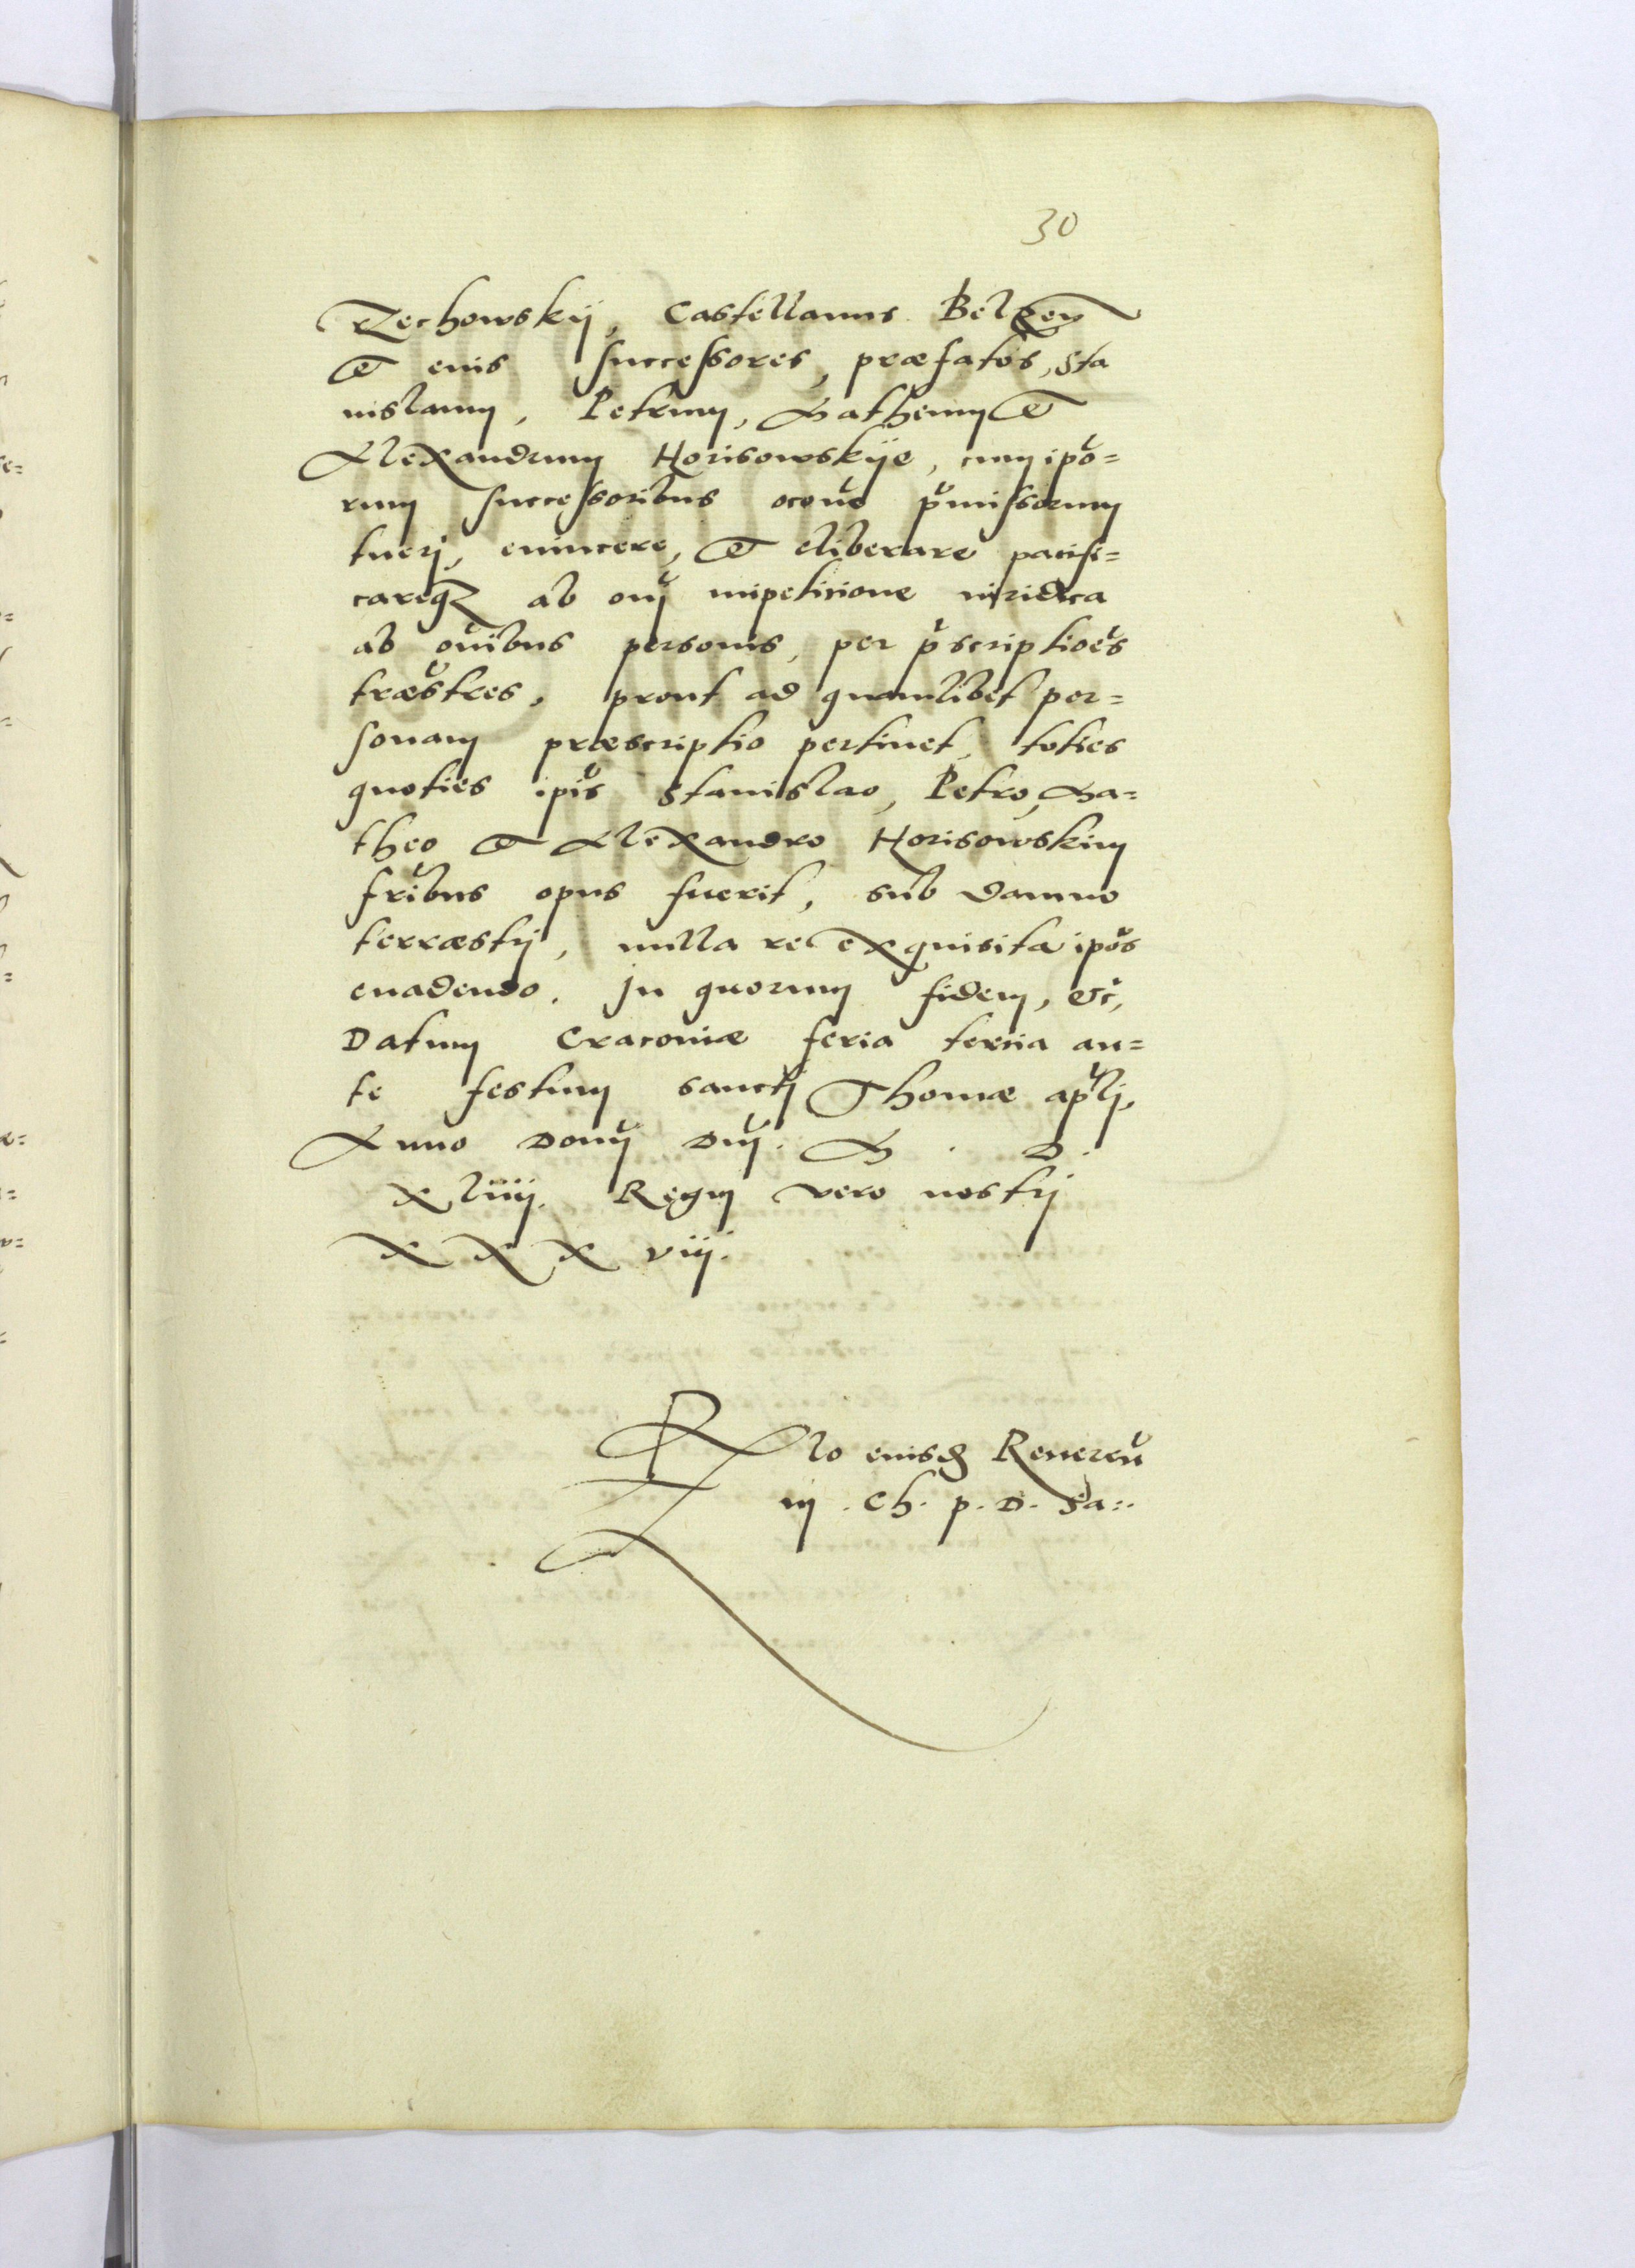 30
rzechowskij, Castellanus Belzeñ
et eius successores, præfatos, Sta
nislaum, Petrum, Matheum et
Alexandrum Horisowskije, cum ipo=
rum successoribus occōne p̃missorum
tuerj, euincere, et eliberare pacifi=
careq; ab om̃j impeticione iuridica
ab om̃ibus personis, per p̃scriptioēs
træstres, prout ad quamlibet per=
sonam præscriptio pertinet, toties
quoties ipis Stanislao, Petro, Ma=
theo et Alexandro Horisowskim
frībus opus fuerit, sub damno
terræstrj, nulla re exquisita ipōs
euadendo. Jn quorum fidem, etc̃,
Datum Cracoviæ feria tercia an=
te festum sanctj Thomæ apl̃j,
Anno Domj Dnj. M . D.
xliiij. Regnj vero nostrj
x x x viij.
Rlo eiusd Reueren
in . Ch. p. D. Sa:.